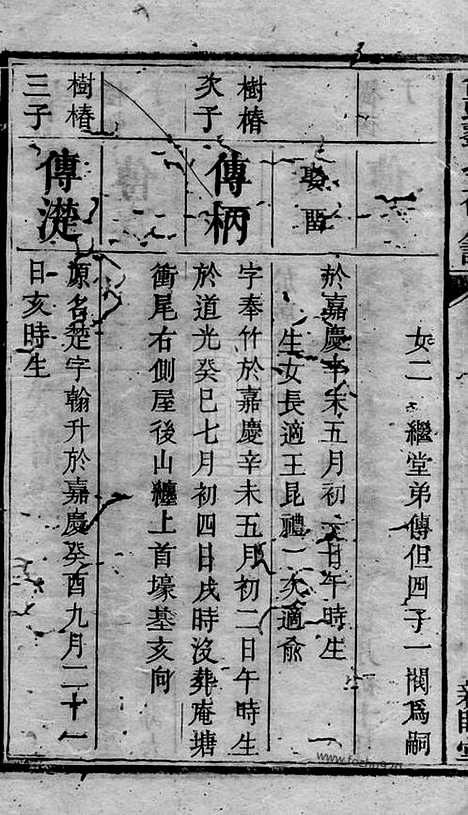 女二 繼堂弟傳但四子一閥爲嗣
娶
於嘉慶辛未五月初 日午時生
生女長適王昆禮二次適俞
樹椿
次子
傳柄
字奉竹於嘉慶辛未五月初二日午時生
於道光癸巳七月初四日戌時沒葬庵塘
衝尾右側屋後山纏上首壕基亥向
樹椿
三子
傳漟
原名楚字翰升於嘉慶癸酉九月二十一
日亥時生